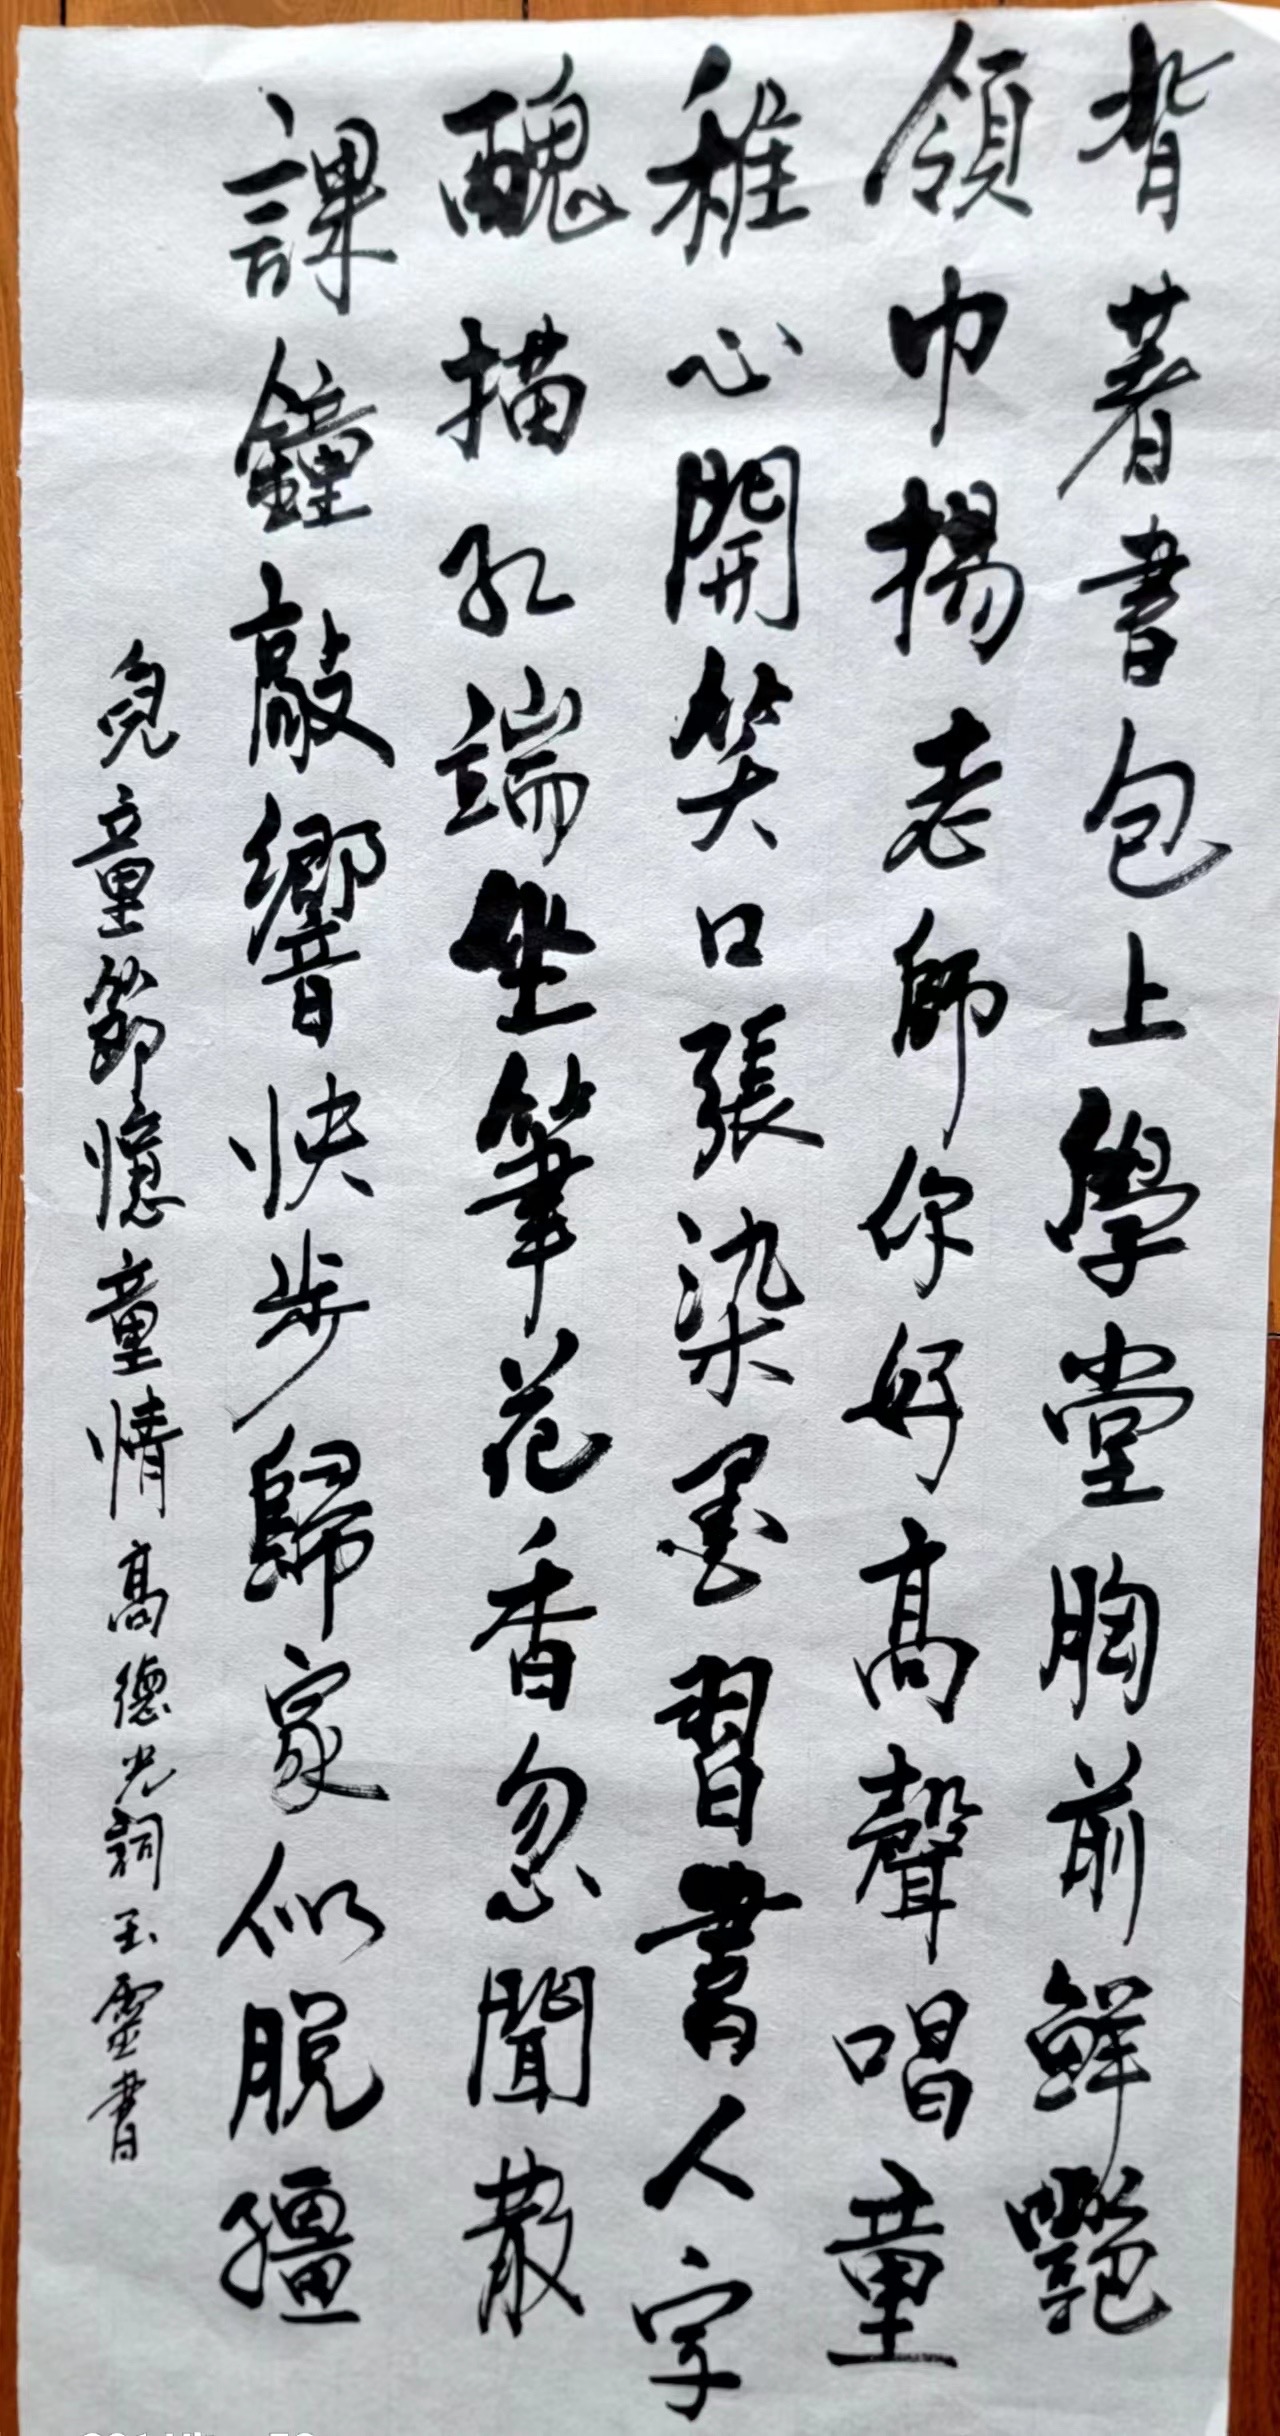 背著書包上學堂胸前鮮艷
領巾揚老師你好高聲唱童
稚心開笑口張染墨習書人字
醜描孔端坐筆花香忽聞散
課鐘敲響快步歸家似脫韁
兒童節憶童情高德光詞玉靈書